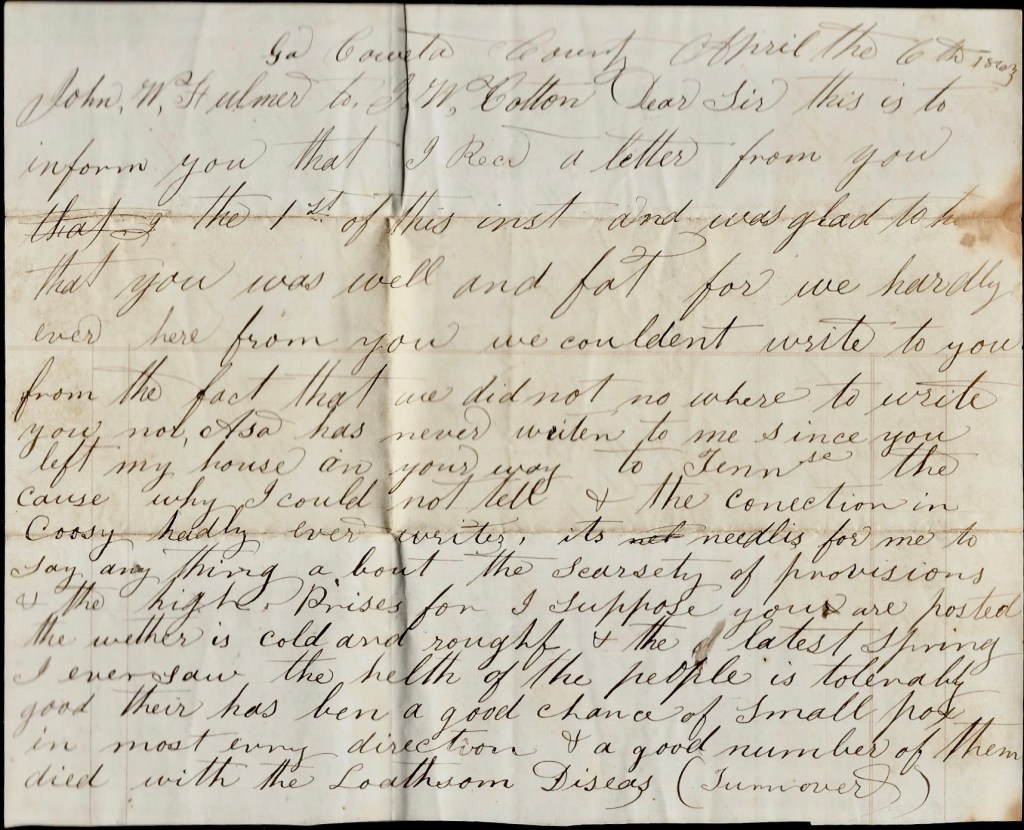 Ga Coweta County April the 6th 1863
John, W, Fulmer to. J, W, Cotton Dear Sir this is to
inform you that I Recd a letter from you
that I the 1st of this inst and was glad to
that you was well and fat for we hardly
ever here from you we couldent write to you
from the fact that we did not no where to write
you nor, Asa has never writen to me since you
left my house on your way to Tennse the
cause why I could not tell & the conection in
Coosy hadly ever writes, its not needlis for me to
say any thing a bout the scarsety of provisions
& the high Prises for I suppose you are posted
the wether is cold and roughf & the latest Spring
I ever saw the helth of the people is tolerably
good their has ben a good chance of Small pox
in most evry direction & a good number of them
died with the Loathsom Diseas (Turnover)